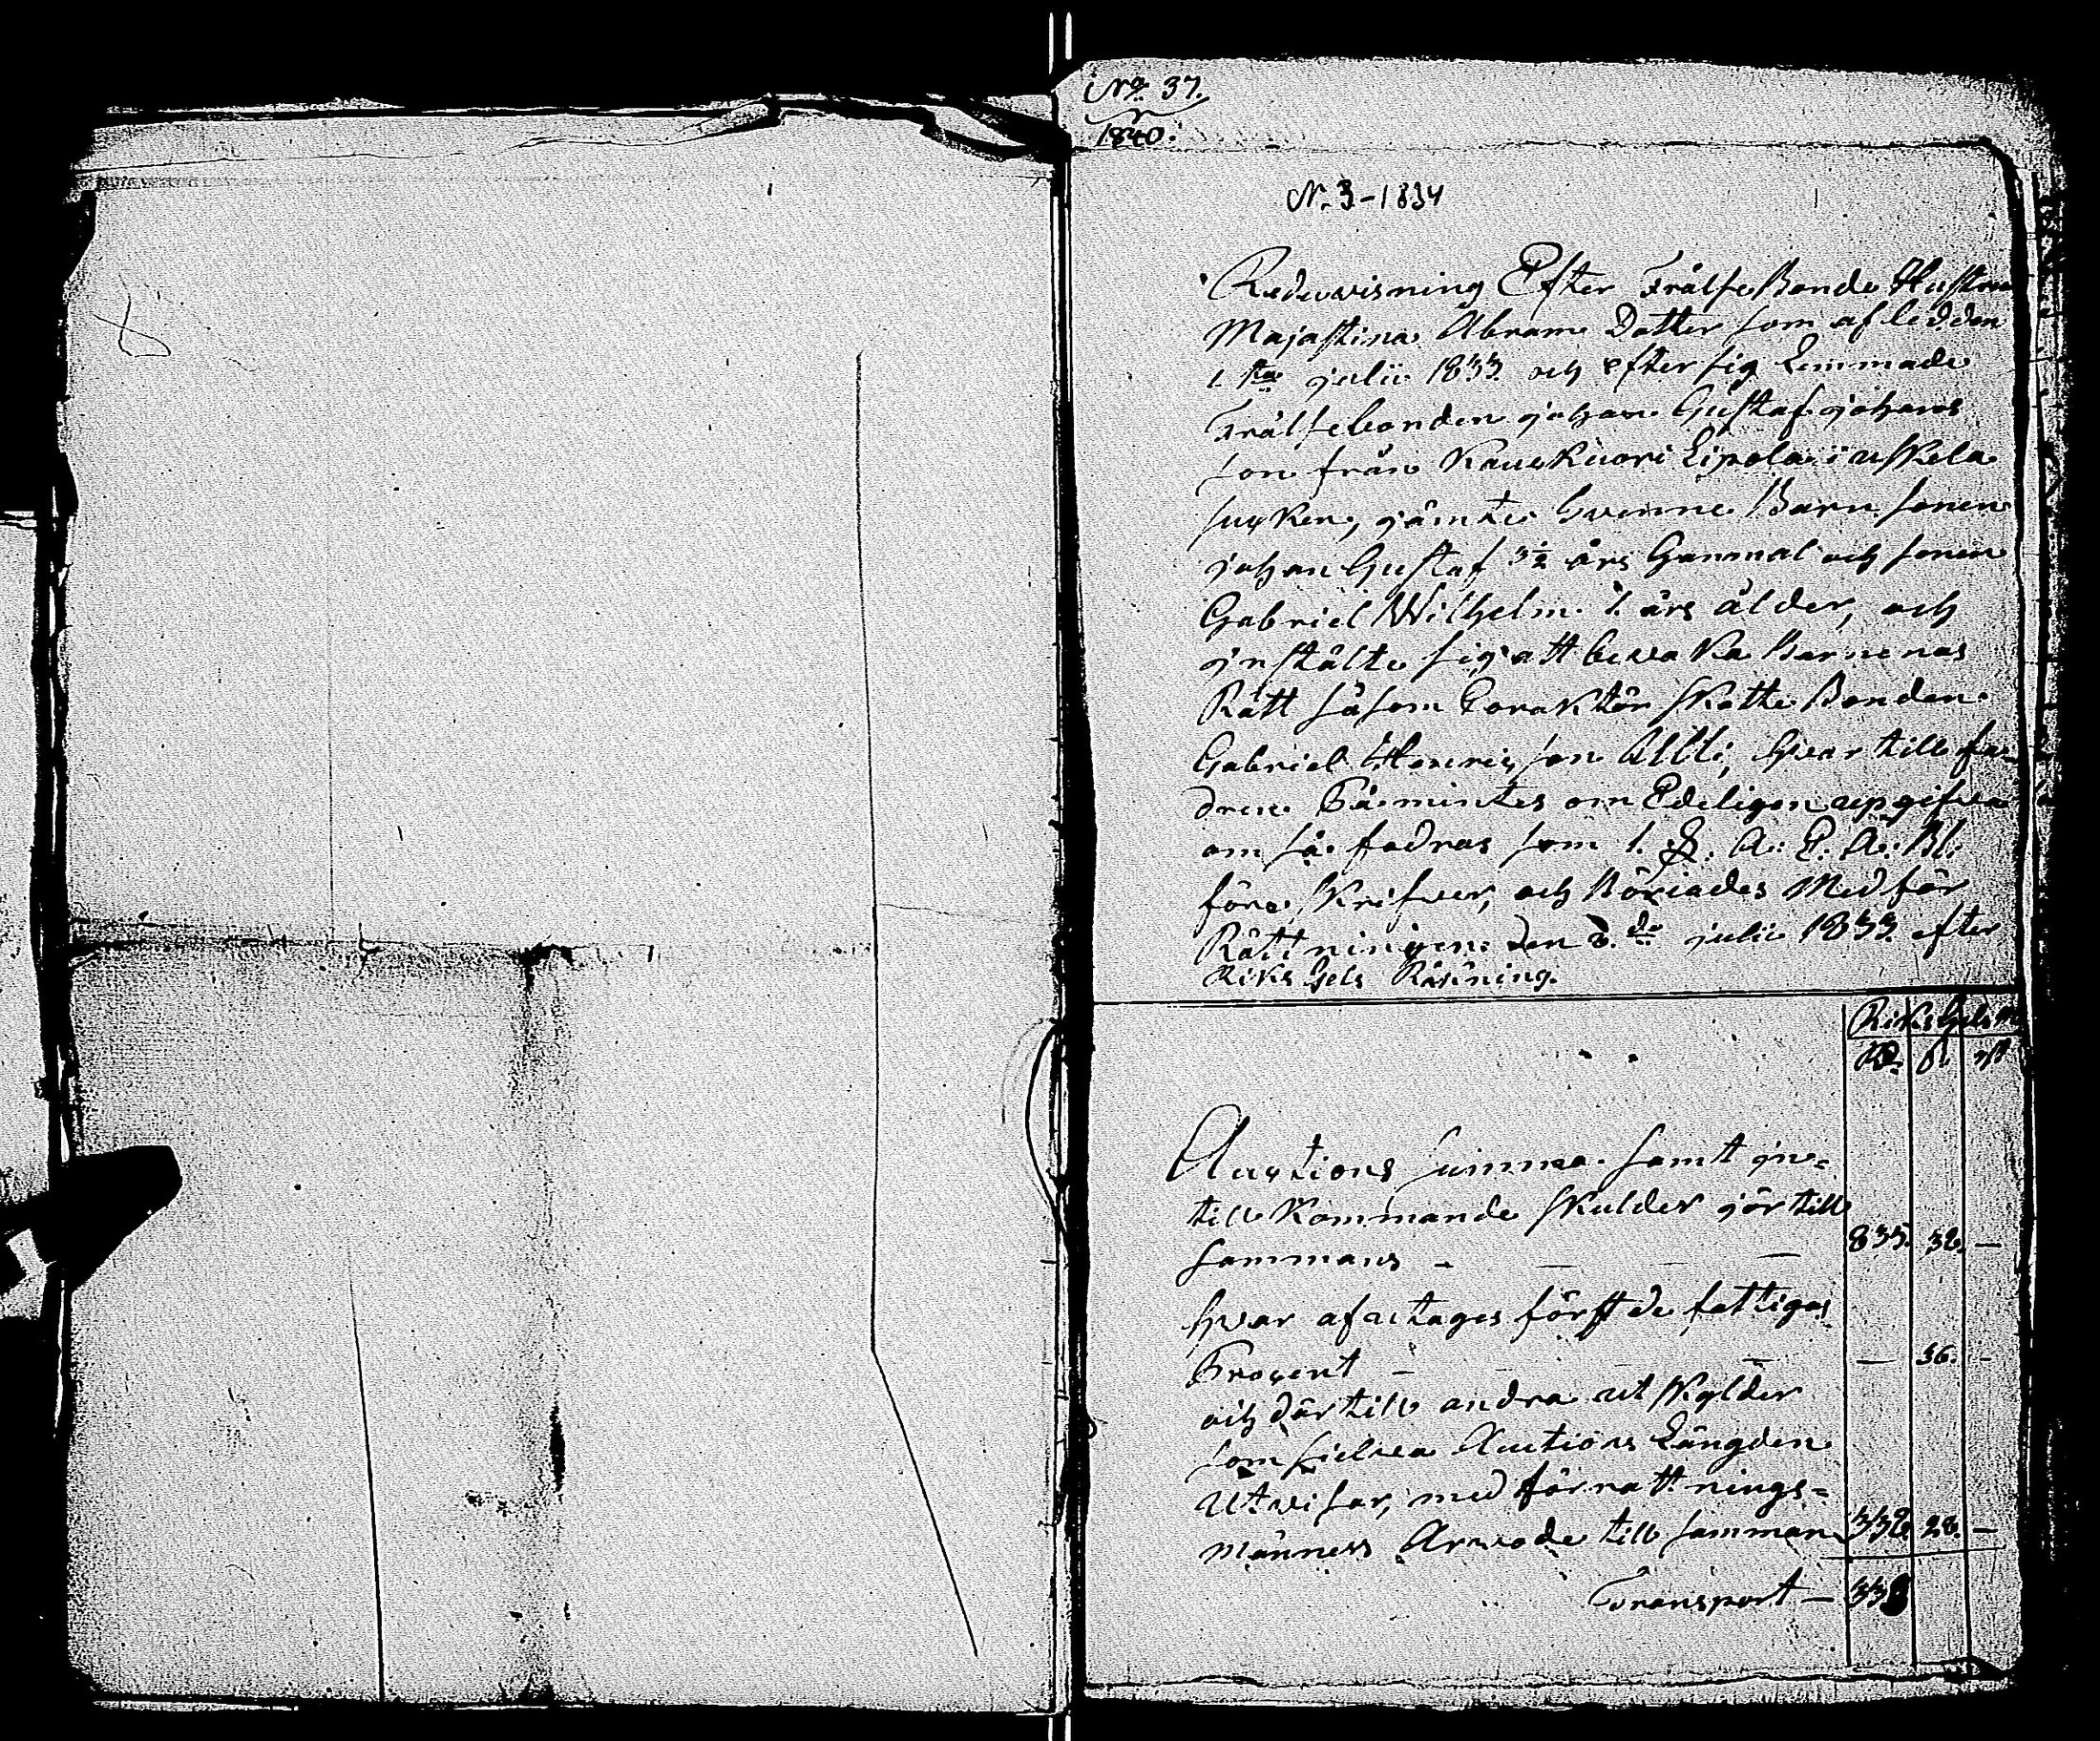 Nro 37.
1840.
N. 3-1834
Redovisning Efter Frälse Bonde Hustru
Majastina Abrams Dotter som afled den
1. sta julii 1833 och efter sig Lemnade
Frälsebonden johan Gustaf johans
son från Kauskuori Lipola i uskela
sucken, jämte tvenne Barn sonen
johan Gustaf 3½ års Gammal och sonen
Gabriel Wilhelm 1. års ålder, och
jnstälte sig att bevaka Barnenas
Rätt såsom Coraktör Skatte Bonden
Gabriel Henricson Alli, hvar till fa-
dren Påmintes om Edeligen upgifva
om så fodras som 1. §. A: C. A: Bl:
före Skrifver, och Böriades Med för
Rättningen den 2. de julii 1833 efter
Riks Gels Räkning.
Riks Gels
Rd. s. rst
Auctions summa samt jn=
till Kommande skulder gör till
sammans - - - 835. 32. -
hvar af uttages först de fattigas
Procent - - - - 36. -
och där till andra utskylder
som sielva Auctions Längden
utvisar, med förrattnings=
männess Arvode till samman 338 28. -
Transport - 338